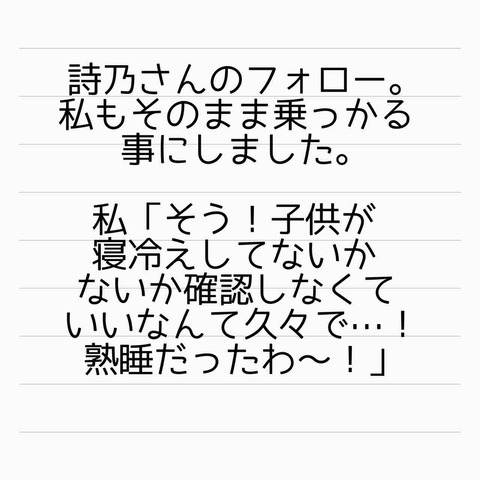 詩乃さんのフォロー。
私もそのまま乗っかる
事にしました。
私「そう！子供が
寝冷えしてないか
ないか確認しなくて
いいなんて久々で…！
熟睡だったわ〜！」